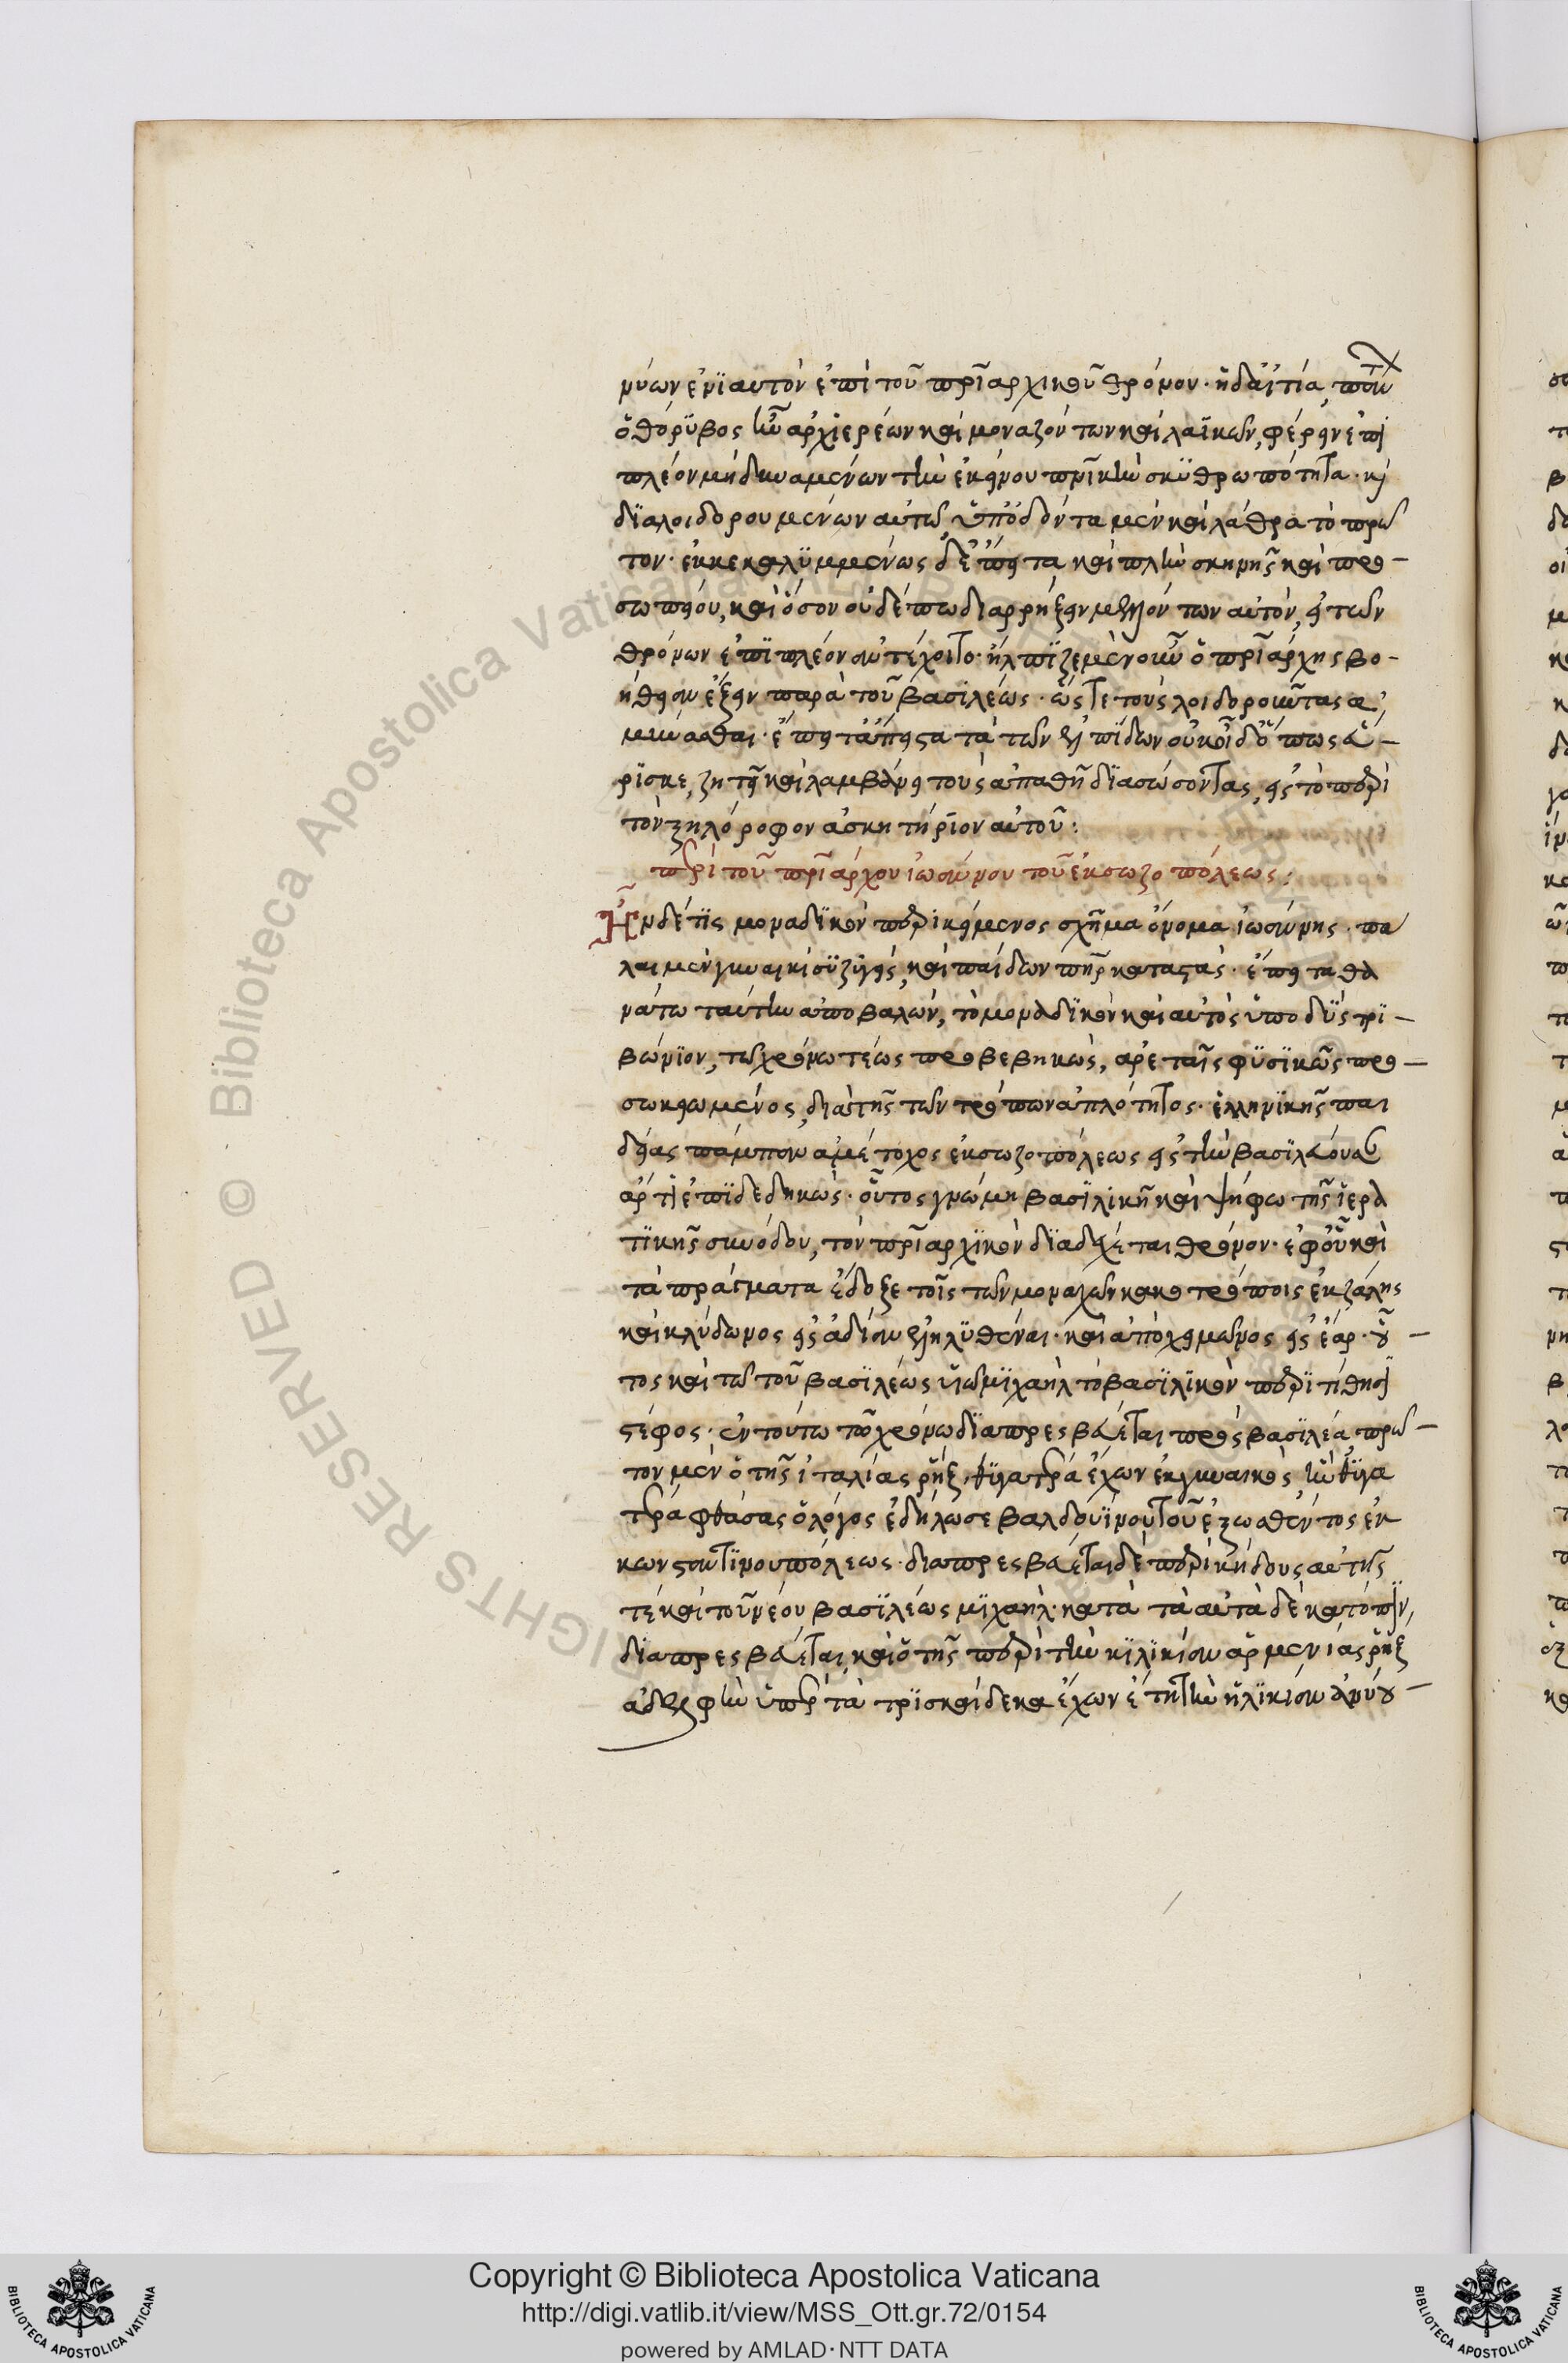 μύων ἐνϊαυτὸν ἐπὶ τοῦ πρι̅αρχικοῦ θρόνου· ἡ δ' αἰτία,
ὁ θόρϋβος ἦν ἀρχϊερέων καὶ μοναζόντων καὶ λαϊκῶν, φέρειν ἐπὶ
πλέον μὴ δυναμένων τὴν ἐκείνου σκϋθρωπότητα· κ
διαλοιδορουμένων αὐτῶ, ὑπόδόντα μὲν καὶ λάθρα τὸ πρῶ
τον· ἐκκεκαλϋμμένως δ' ἔπειτα καὶ πλὴν σκηνῆς καὶ προ-
σωπείου, καὶ ὅσον οὐδέπω διαρρήξειν μελλόντων αὐτὸν, εἰ τῶν
θρόνων ἐπϊπλέον ἀντέχοιτο· ἤλπϊζε μὲν οὖν ὁ πρι̅άρχης βο-
ήθειαν ἕξειν παρὰ τοῦ βασιλέως· ὥστε τοὺς λοιδοροῦντας ἀ
μύνασθαι· ἔπειτ' ἄπιστα τὰ τῶν ἐλπίδων οὐκ οἶδ' ὅπως εὕ-
ρϊσκε, ζητεῖ καὶ λαμβάνει τοὺς ἀπαθῆ διασώσοντας, εἰς τὸ περὶ
τὸν ξηλόροφον ἀσκητήριον αὐτοῦ:
περὶ τοῦ πρι̅άρχου ἰωάννου τοῦ ἐκ σωζοπόλεως:
Ἦν δέ τις μοναδϊκὸν περικείμενος σχῆμα ὄνομα ἰωάννης· πά
λαι μὲν γυναικὶ σϋζϋγεὶς, καὶ παίδων πηρ καταστάς· ἔπειτα θα
νάτω ταύτην ἀποβαλὼν, τὸ μοναδϊκὸν καὶ αὐτὸς ὑποδὺς τρι-
βώνϊον, τῶ χρόνω τέως προβεβηκὼς, ἀρεταῖς φϋσϊκαῖς προ-
σωκειωμένος, διὰ τῆς τῶν τρόπων ἁπλότητος· ἑλληνϊκῆς παι
δείας πάμπαν ἀμέτοχος ἐκ σωζοπόλεως εἰς τὴν βασϊλεύουσαν
ἄρτι ἐπϊδεδηκώς· οὗτος γνώμη βασϊλικῆ καὶ ψήφω τῆς ἱερα
τϊκῆς συνόδου, τὸν πρι̅αρχϊκὸν διαδέχεται θρόνον· ἐφ' οὗ καὶ
τὰ πράγματα ἔδοξε τοῖς τῶν μοναχῶν κακοτρόποις ἐκ ζάλης
καὶ κλύδωνος εἰς ἄδειαν ἐληλϋθέναι· καὶ ἀπὸ χειμῶνος εἰς ἔαρ· οὗ-
τος καὶ τῶ τοῦ βασϊλέως υἱῶ μϊχαὴλ τὸ βασϊλϊκὸν περϊτίθησι
στέφος· ἐν τούτω τῶ χρόνω διαπρεσβεύεται πρὸς βασϊλέα, πρῶ-
τον μὲν ὁ τῆς ἰταλίας ρῆξ, θϋγατέρα ἔχων ἐκ γυναικὸς, ἣν θϋγα
τέρα φθάσας ὁ λόγος ἐδήλωσε βαλδουϊνου τοῦ ἐξωσθέντος ἐκ
κωνσταντϊνουπόλεως· διαπρεσβεύεται δὲ περὶ κήδους αὐτῆς
τὲ καὶ τοῦ νέου βασϊλέως μϊχαὴλ· κατὰ τὰ αὐτὰ δὲ κατόπϊν,
διαπρεσβεύεται, καὶ ὁ τῆς περὶ τὴν κϊλϊκίαν ἀρμενίας ρῆξ
ἀδελφὴν ὑπὲρ τὰ τρϊσκαίδεκα ἔχων ἔτη τὴν ἡλϊκίαν ἀνύου-
Copyright © Biblioteca Apostolica Vaticana
http://digi.vatlib.it/view/MSS_Ott.gr.72/0154
powered by AMLAD·NTT DATA